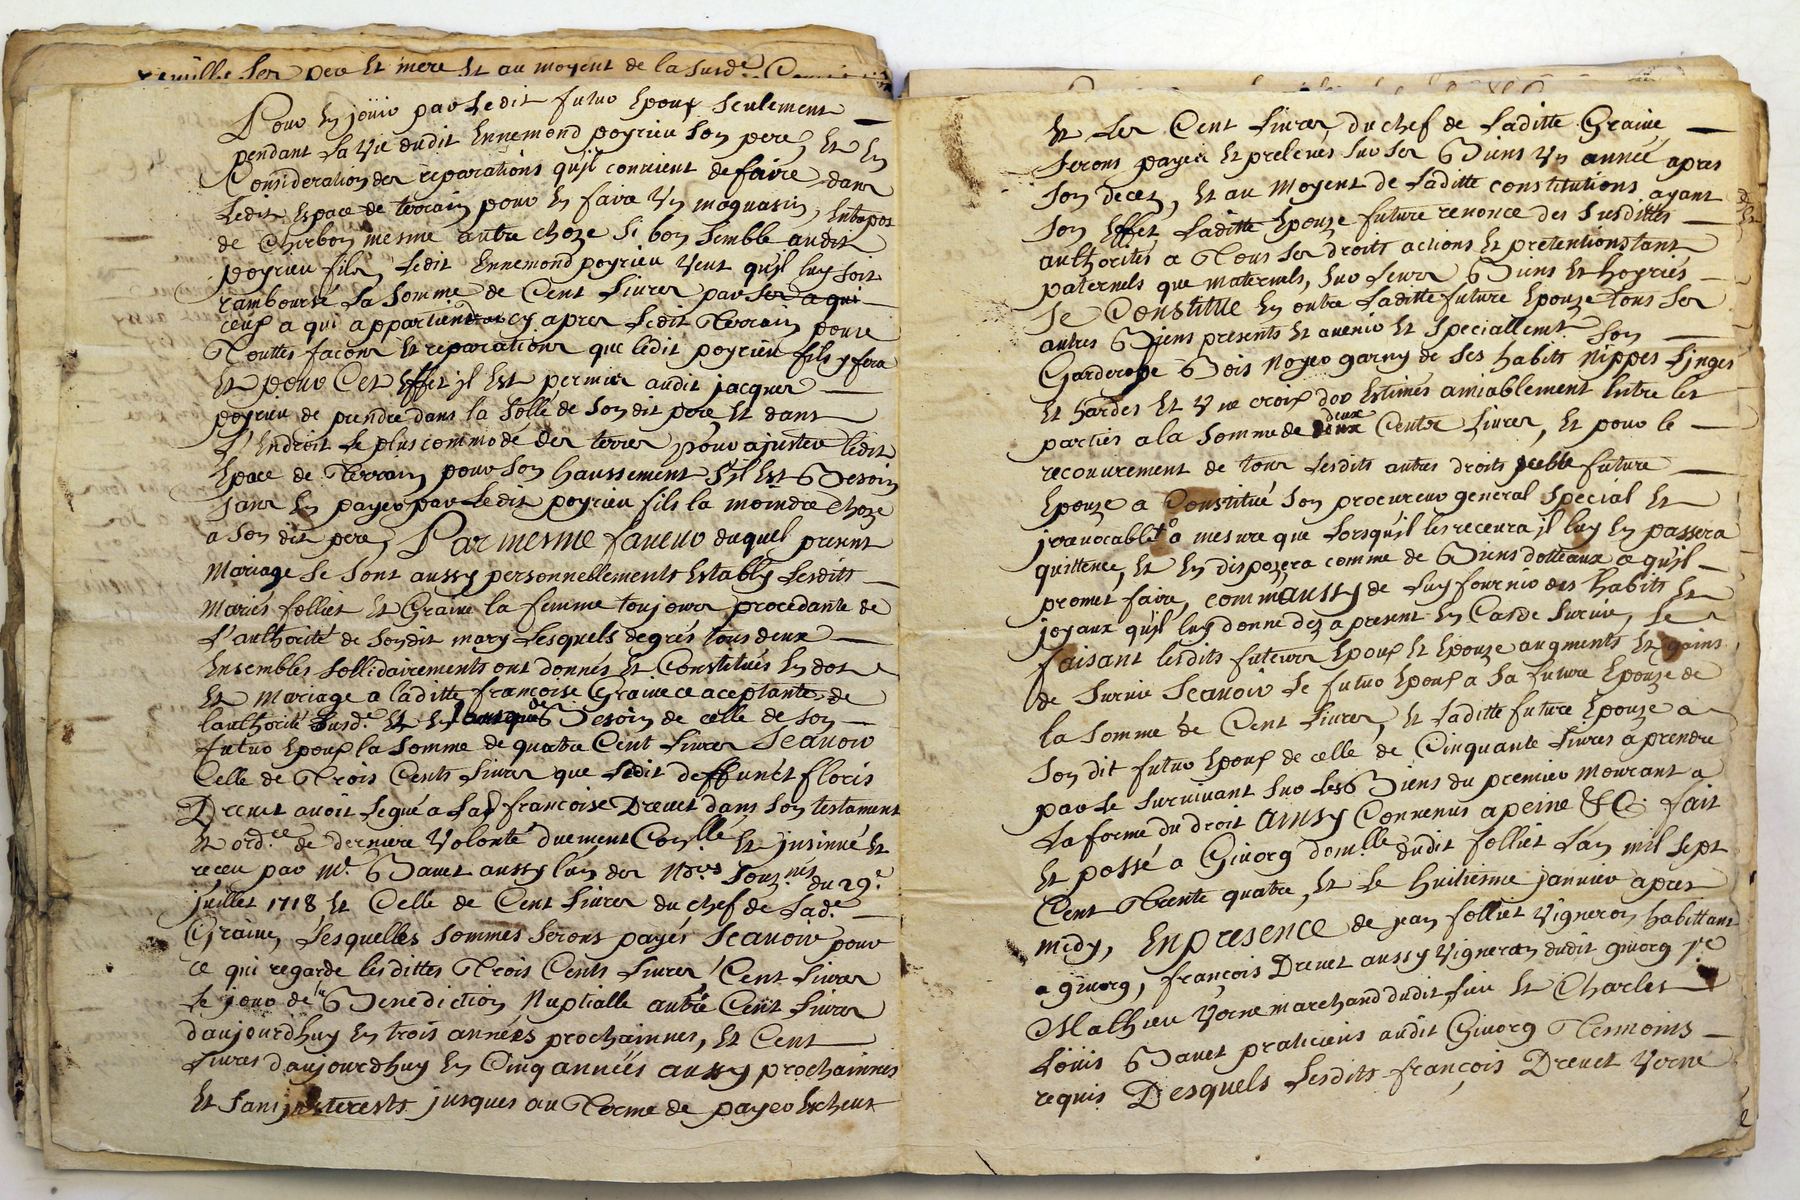 famille ses pere et mere et au moyent de la susde
Pour en joüir par ledit futur Epoux seulement
pendant la Vie dudit Ennemond poyrieu son pere, et En
Consideration des reparations qu'il convient de faire dans
Ledit Espace de terrain pour En faire Un magnasin, Entrepos
de Charbon mesme autre choze si bon semble audit
poyrieu fils, Ledit Ennemond poyrieu Veut qu'il luy soit
ramboursé La somme de Cent Livres par ses a qui
ceux a qui appartiendra cy apres Ledit Terrain poure
Touttes façons Et reparations que ledit poyrieu fils y fera
Et pour Cet Effet il Est permis audit jacques
poyrieu de prendre dans la Sollé de Son dit pere, Et dans
L'Endroit Le plus commode des terres pour ajuster ledit
Epace de Terrain pour Son haussement S'il Est Besoin
sans En payer par Ledit poyrieu fils la moindre choze
a Son dit pere, Par mesme faveur duquel present
Mariage Se Sont aussy personnellements Estably Lesdits
Mariés follier Et Graine la femme toujours procedante de
L'authorité de Sondit mary Lesquels de grés tous deux
Ensembles Sollidairements ont donnés Et Constitués En dot
Et Mariage a laditte françoise Graine ce aceptante de
lauthorité Susde Et En tant que de Besoin de celle de Son
futur Epoux la Somme de quatre Cent Livres Scavoir
Celle de Trois Cents Livres que Ledit deffunct floris
Drevet avoit Legué a Lad françoise Drevet dans Son testament
Et ordce de derniere Volonté duement Conllé Et jnsinué Et
receu par Me Bavet aussy lun des Ndres Souznés du 29e
juillet 1718 Et Celle de Cent Livres du chef de Lade
Graine, Lesquelles Sommes Serons payés Scavoir pour
Ce qui regarde lesdittes Trois Cents Livres, Cent Livres
Le jour de la Benediction Nuptialle autre Cent Livres
daujourdhuy En trois années prochainnes, Et Cent
Livres daujourdhuy En Cinq années aussy prochainnes
Et Sans jnterests jusques au Terme de payer Escheut
Et Les Cent Livres du chef de Laditte Graine
Serons payés Et prelevés Sur Ses Biens Un année apres
Son decet, Et au Moyent de Laditte constitutions ayant
Son Effet Laditte Epouze future renonce des Susdittes
authorités a Tous Ses droits actions Et pretentions tant
paternels que maternels, Sur Leurs Biens Et hoyriés
Se Constitue En outre Laditte future Epouze tous Ses
autres Biens presents Et avenir Et Speciallemt Son
Garderobe Bois Noyer garny de Ses habits Nippes Linges
Et hardes Et Une croix d'or Estimés amiablement Entre les
parties a la Somme de deux deux Cents Livres, Et pour le
recouvrement de tous Lesdits autres droits jcelle future
Epouze a Constitué Son procureur general Special Et
jrrevocable a mesure que Lorsqu'il les recevra jl luy En passera
quittence, Et En disposera comme de Biens dotteaux a qu'il
promet faire, comm'aussy de Luy fournir des habits Et
joyaux qu'il luy donne dez a present En Cas de Survie, Se
faisant lesdits futeurs Epoux Et Epouze augments Et gains
de Survie Scavoir Le futur Epoux a Sa future Epouze de
la Somme de Cent Livres, Et Laditte future Epouze a
Son dit futur Epoux de celle de Cinquante Livres a prendre
par Le Survivant Sur Les Biens du premier Mourant a
La forme du droit ainsy Convenus a peine &C. fait
Et passé a Givorg domlle dudit follier Lan mil Sept
Cent Trente quatre, Et Le huitiesme janvier apres
midy, En presence de jean follier Vigneron habittant
a givorg, françois Drevet aussy Vigneron dudit givorg Sr
Mathieu Vorne marchand dudit lieu Et Charles
Loüis Bavet praticiens audit Givorg Tesmoins
requis Desquels Lesdits françois Drevet Vorne